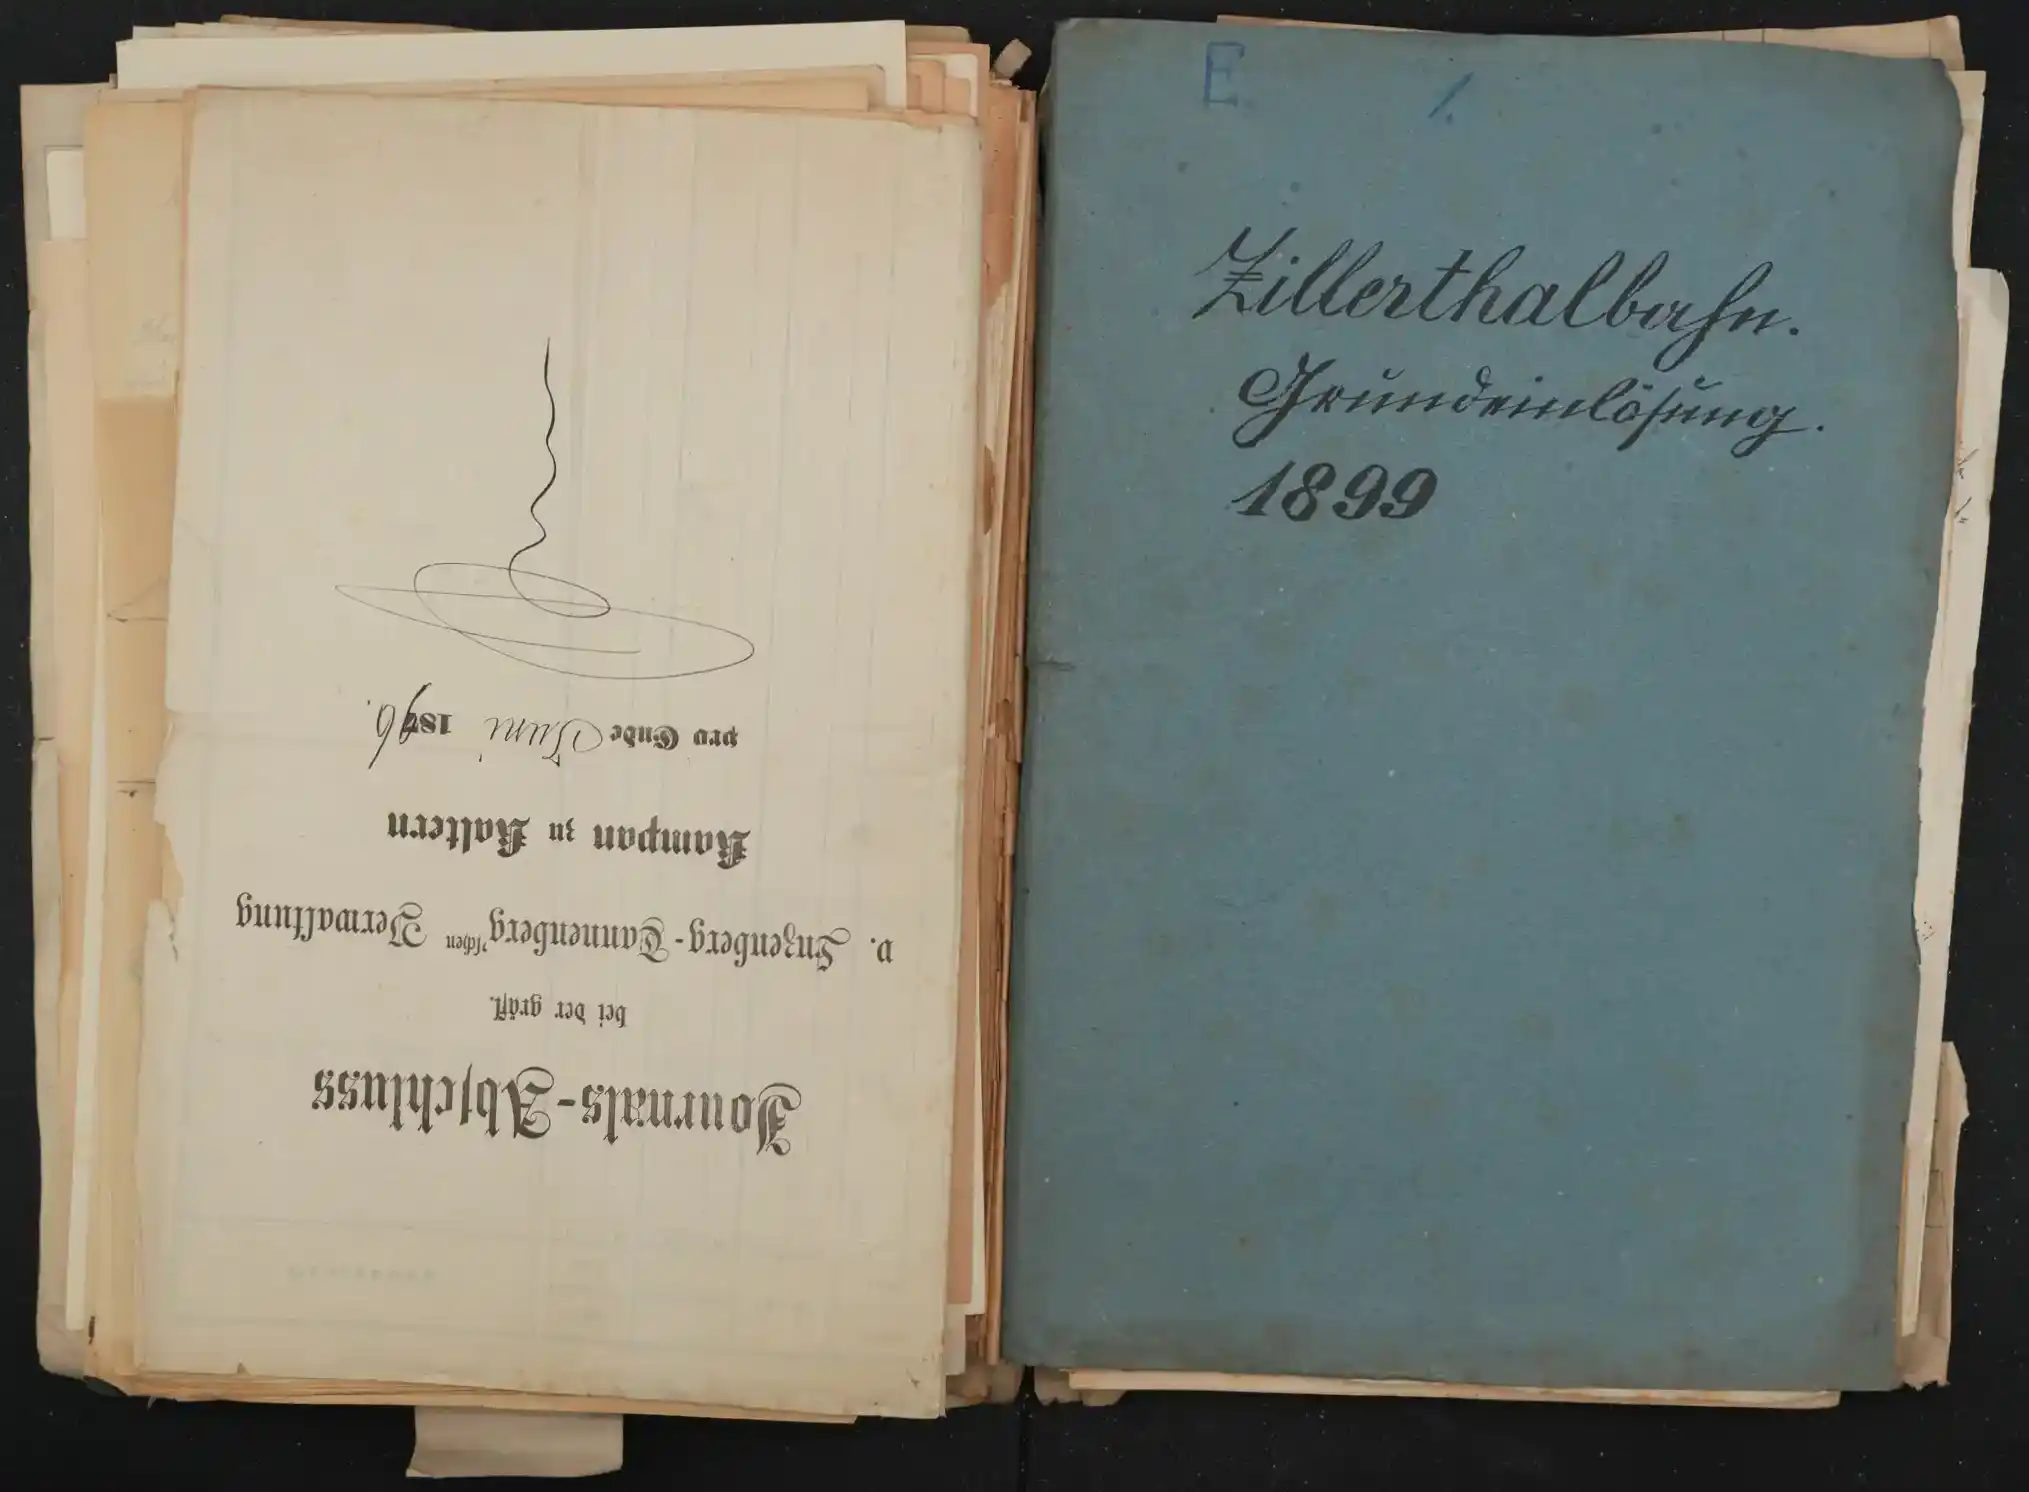 Journals-Abschluss
bei der gräfl.
v. Enzenberg-Tannenberg'schen Verwaltung
Kampan zu Kaltern
pro Ende Juni 1896.
E. 1.
Zillerthalbahn.
Grundeinlösung.
1899